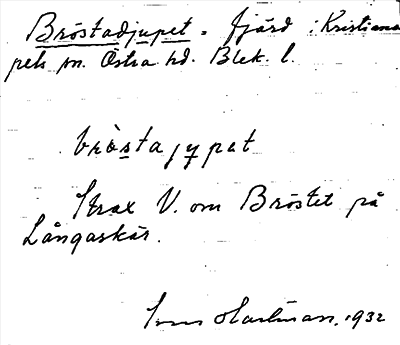 Bröstadjupet. fjärd i Kristiano
pels sn. Östra hd. Blek. l.
bròstajypat
Strax V. om Bröstet på
Långaskär.
Hartman. 1932